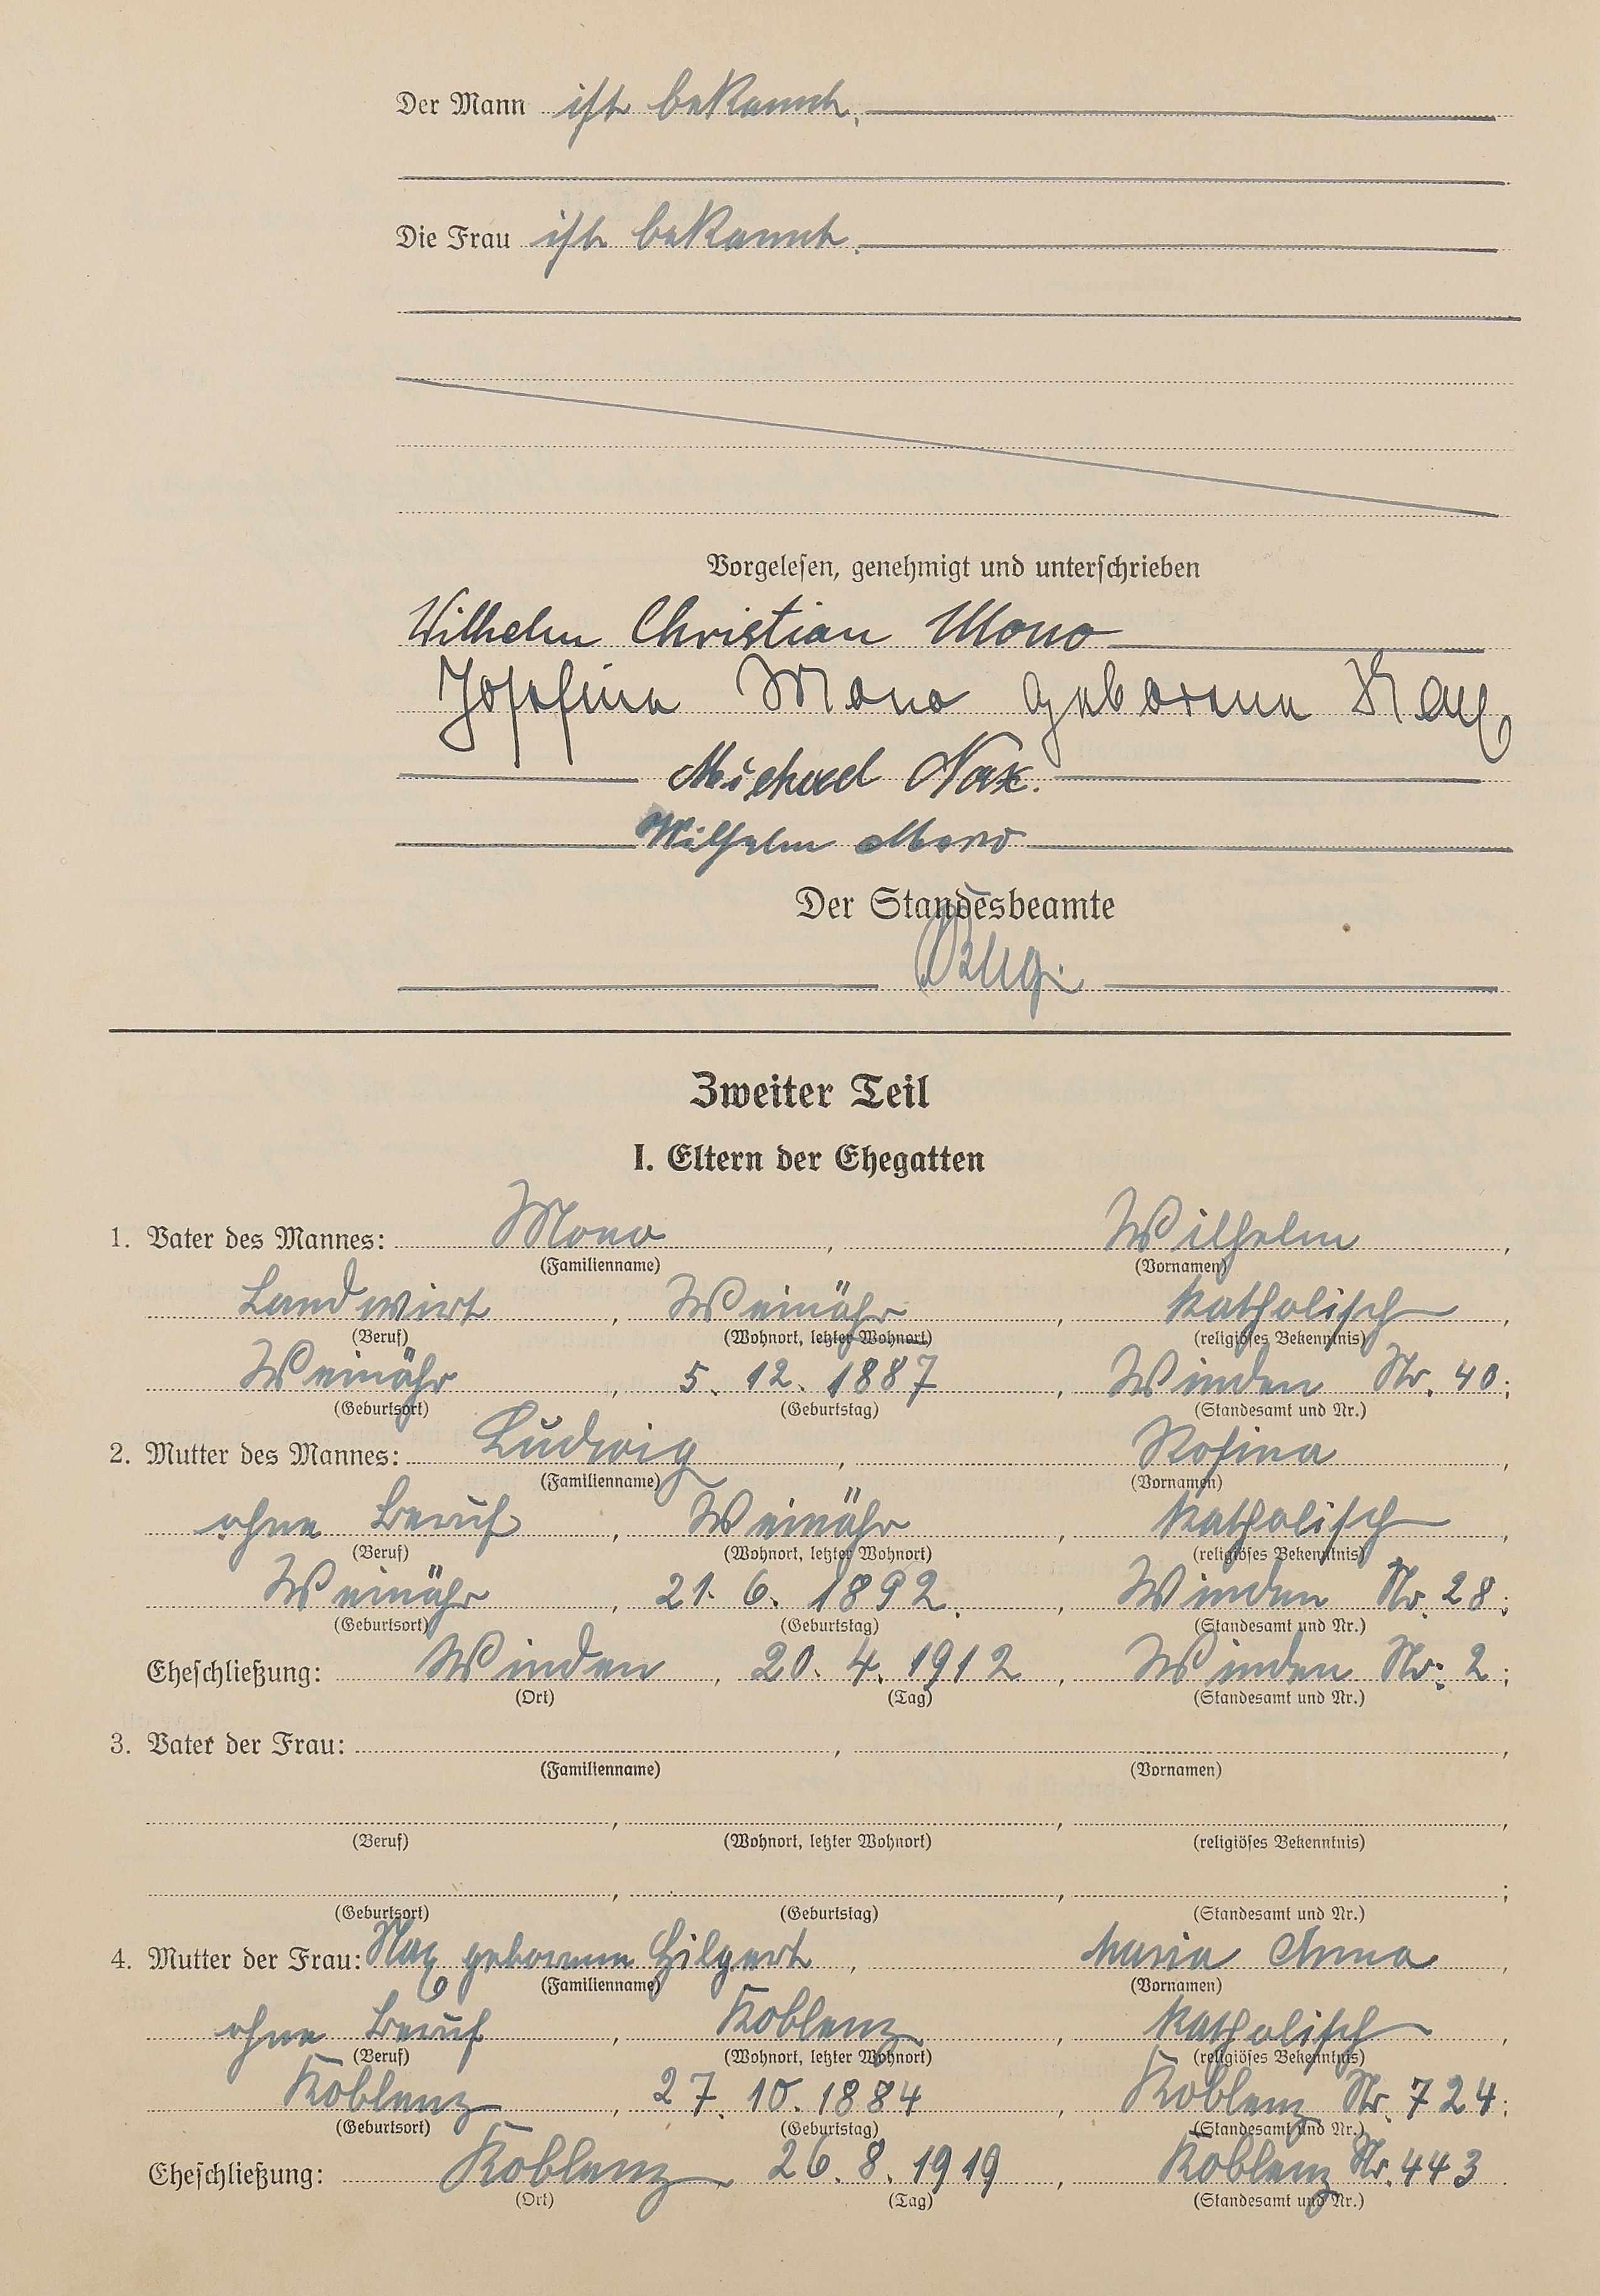 Der Mann ist bekannt.
Die Frau ist bekannt.
Vorgelesen, genehmigt und unterschrieben
Wilhelm Christian Mono
Josefina Mono geborene Nax
Michael Nax.
Wilhelm Mono
Der Standesbeamte
Zweiter Teil
I. Eltern der Ehegatten
1. Vater des Mannes: Mono, Wilhelm,
(Familienname) (Vornamen)
Landwirt, Weinähr, katholisch,
(Beruf) (Wohnort, letzter Wohnort) (religiöses Bekenntnis)
Weinähr, 5. 12. 1887, Winden Nr. 40;
(Geburtsort) (Geburtstag) (Standesamt und Nr.)
2. Mutter des Mannes: Ludwig, Rosina,
(Familienname) (Vornamen)
ohne Beruf, Weinähr, katholisch,
(Beruf) (Wohnort, letzter Wohnort) (religiöses Bekenntnis)
Weinähr, 21. 6. 1892., Winden Nr. 28;
(Geburtsort) (Geburtstag) (Standesamt und Nr.)
Eheschließung: Winden, 20. 4. 1912, Winden Nr. 2;
(Ort) (Tag) (Standesamt und Nr.)
3. Vater der Frau: , ,
(Familienname) (Vornamen)
, , ,
(Beruf) (Wohnort, letzter Wohnort) (religiöses Bekenntnis)
, , ;
(Geburtsort) (Geburtstag) (Standesamt und Nr.)
4. Mutter der Frau: Nax geborene Hilgert, Maria Anna,
(Familienname) (Vornamen)
ohne Beruf, Koblenz, katholisch,
(Beruf) (Wohnort, letzter Wohnort) (religiöses Bekenntnis)
Koblenz, 27. 10. 1884, Koblenz Nr. 724;
(Geburtsort) (Geburtstag) (Standesamt und Nr.)
Eheschließung: Koblenz, 26. 8. 1919, Koblenz Nr. 443.
(Ort) (Tag) (Standesamt und Nr.)